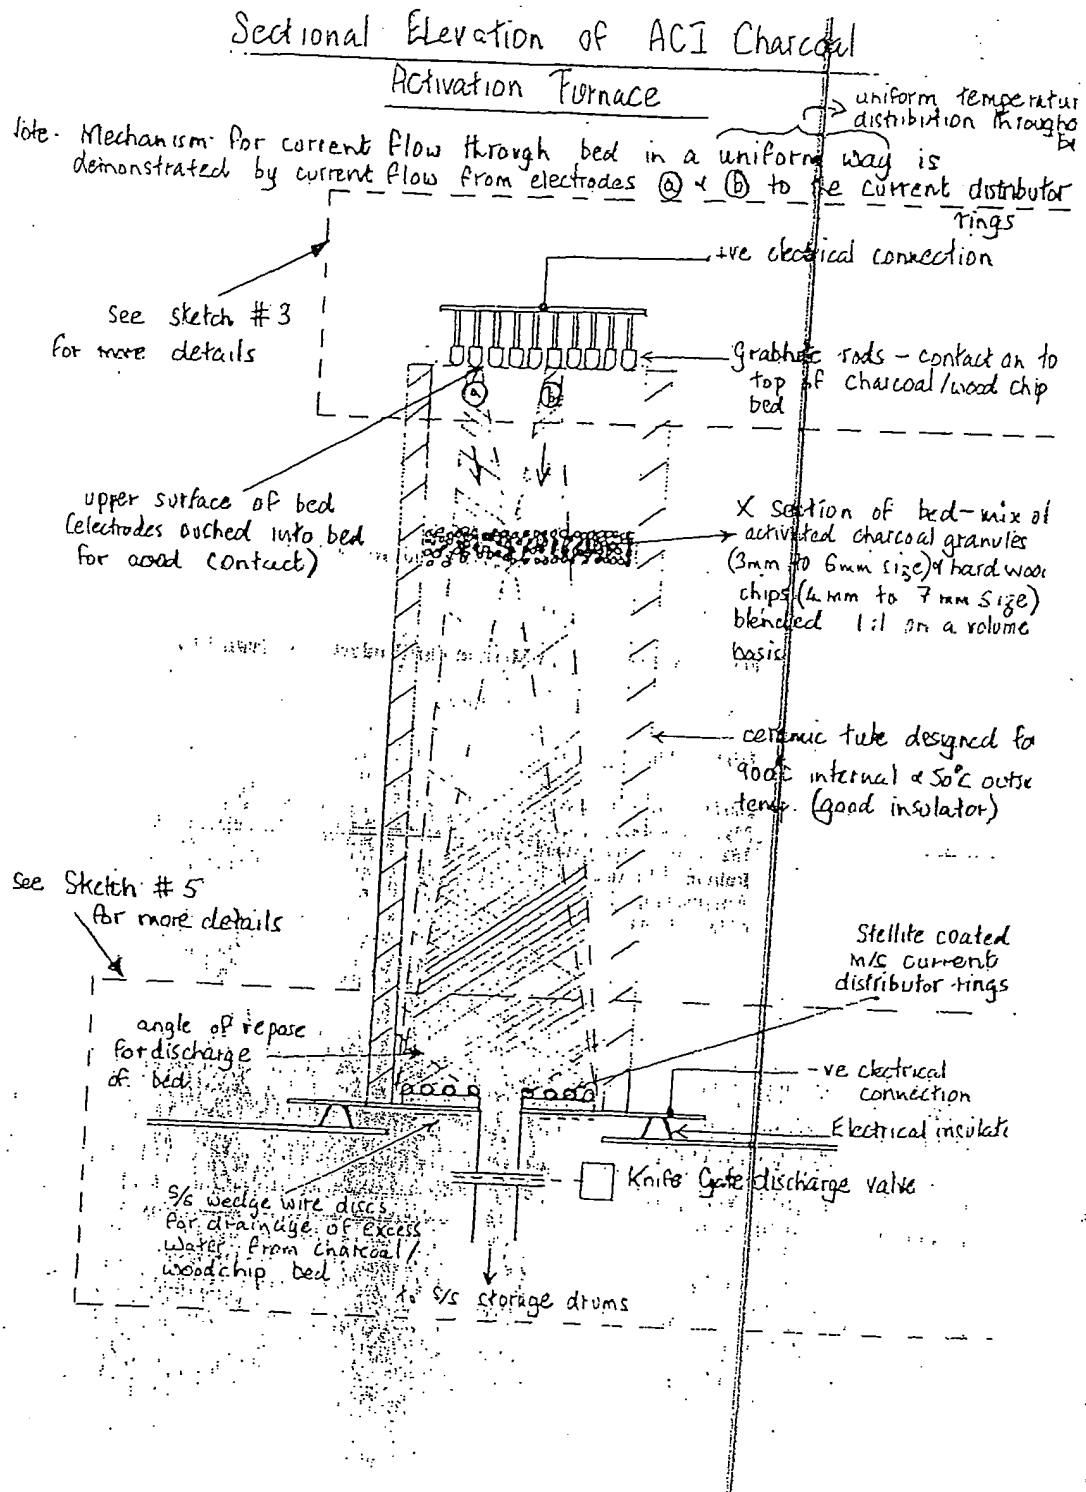 Sectional Elevation of ACI Charcoal
Activation Furnace
uniform temperatur
distribution througho
be
Note- Mechanism for current flow through bed in a uniform way is
demonstrated by current flow from electrodes ⓐ & ⓑ to the current distributor
rings
+ve electrical connection
See sketch #3
for more details
Graphite rods - contact on to
top of charcoal/wood chip
bed
a
b
upper surface of bed
(electrodes pushed into bed
for good contact)
X section of bed-mix of
activated charcoal granules
(3mm to 6mm size) & hard woo
chips (4mm to 7mm size)
blended 1:1 on a volume
basis
ceramic tube designed fo
900°C internal & 50°C outsi
temp. (good insulator)
See Sketch #5
for more details
Stellite coated
m/s current
distributor rings
angle of repose
for discharge
of bed
-ve electrical
connection
Electrical insulate
S/S wedge wire discs
for drainage of excess
water from charcoal/
woodchip bed
Knife Gate discharge valve
to S/S storage drums